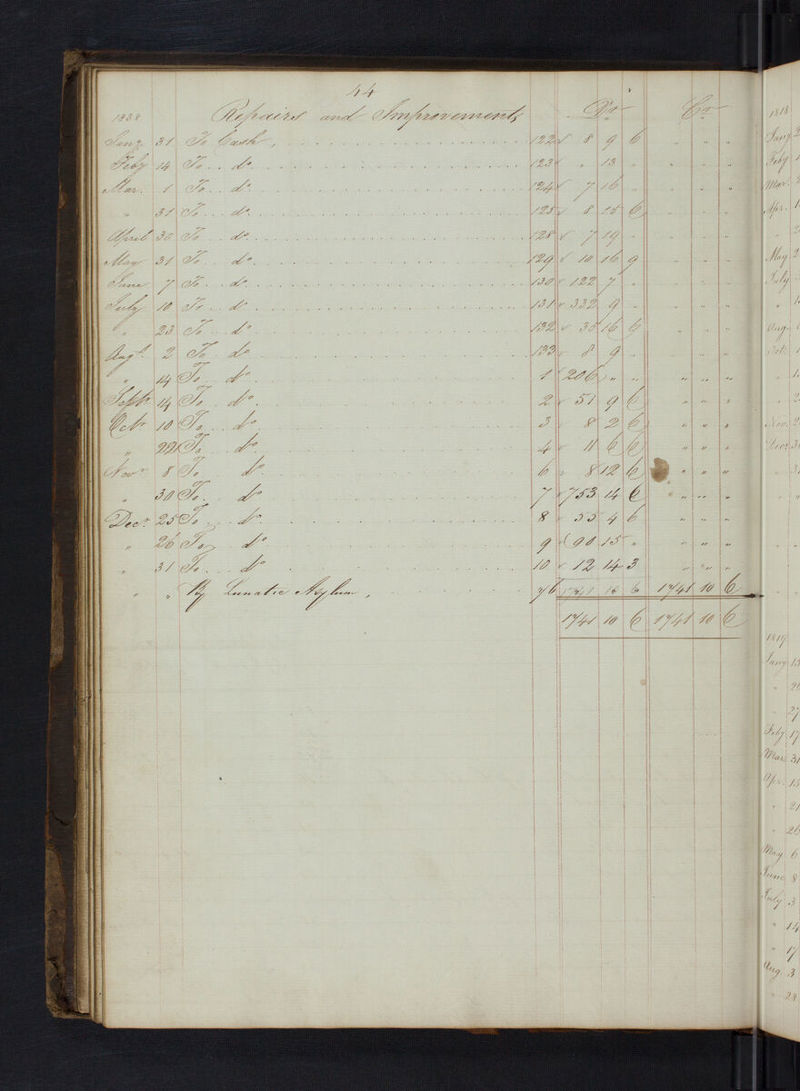 44
Repairs and Improvements Dr Cr
Jany 31 To Cash, 122 8 9 6 " " "
Feby 14 To do 123 " 13 " " " "
Mar. 1 To do 124 7 16 " " " "
" 31 To do 125 8 15 6
April 30 To do 128 7 19 -
May 31 To do 129 10 16 9
June 7 To do 130 122 7 -
July 10 To do 131 332 9 -
" 23 To do 132 16 6
Augt. 2 To do 133 8 9 -
" 14 To do 1 206 " " " " "
Septr 14 To do 2 51 9 6 " " "
Octr 10 To do 3 8 2 6 " " "
" 22 To do 4 11 6 6 " " "
Novr 8 To do 6 8 12 6 " " "
" 30 To do 7 753 14 6 " " "
Decr. 25 To do 8 55 4 6 " " "
" 26 To do 9 90 15 " " " "
" 31 To do 10 12 14 3 " " "
" " By Lunatic Asylum, 76 1741 10 6
1741 10 6 1741 10 6
1818
Jany
Feby
Mar.
Apr.
May
July
Aug.
Nov.
1819
Jany 13
" 27
Feby 17
Mar 31
Apr.
" 21
" 26
May 6
June 8
July 3
" 14
" 17
Aug. 3
" 23